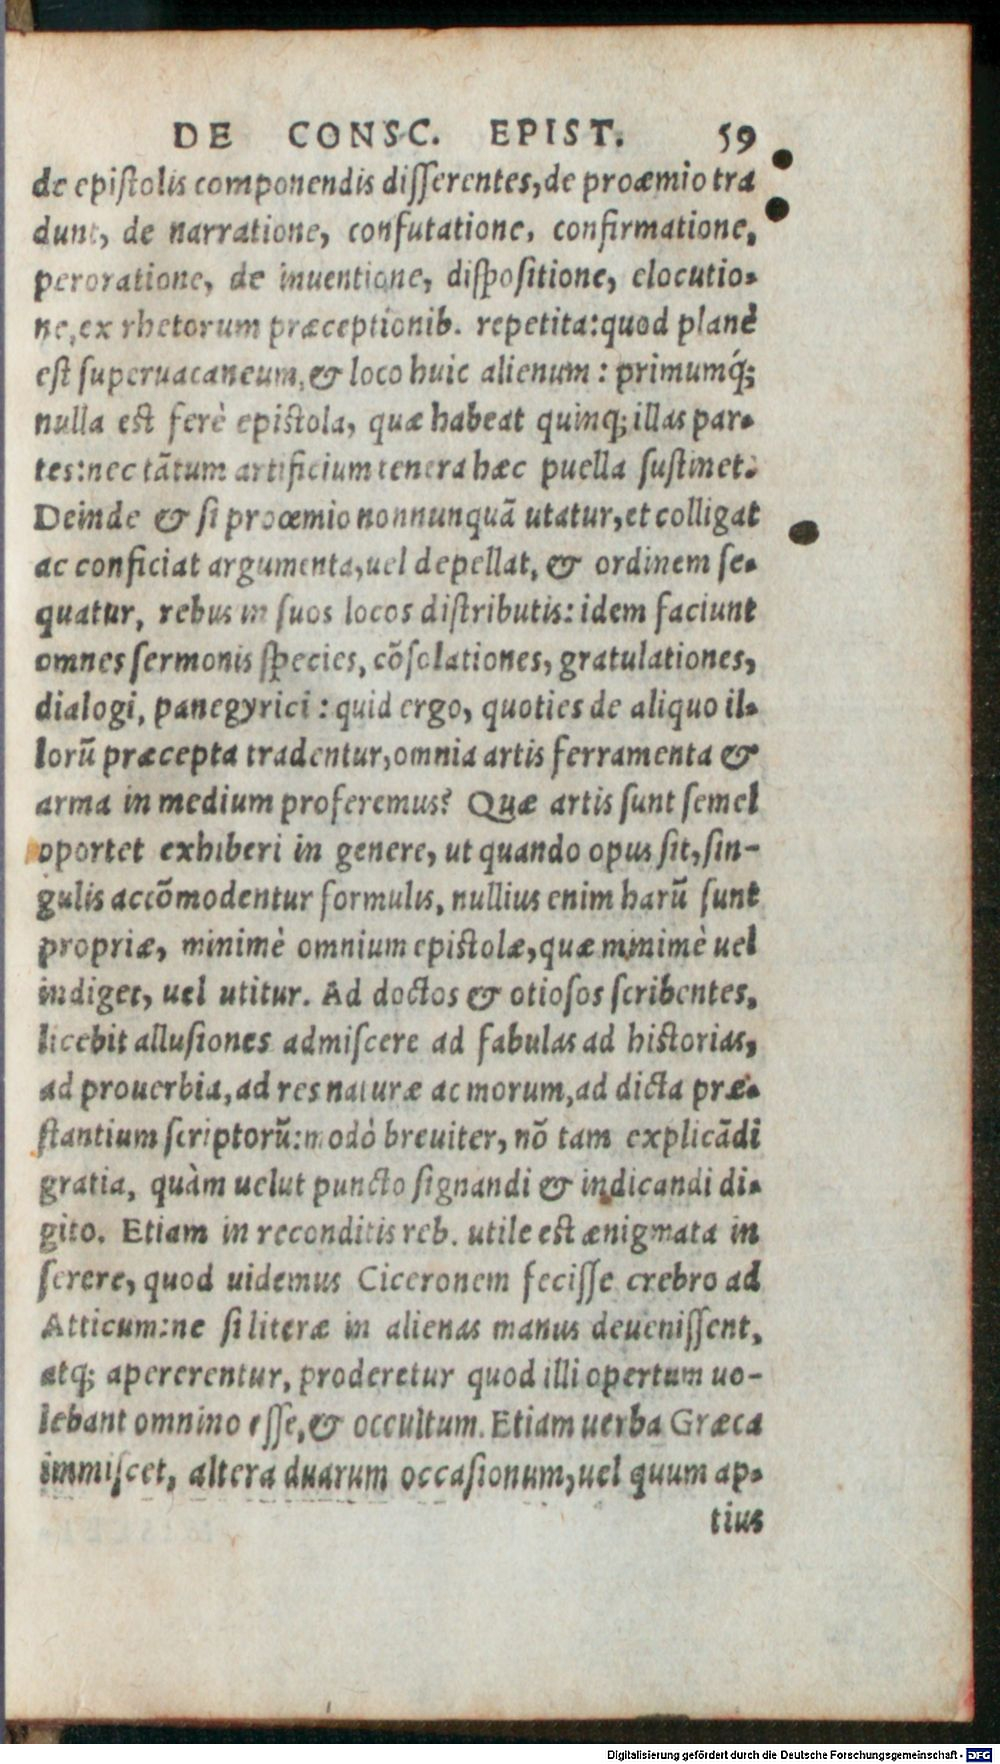 DE CONSC. EPIST. 59
de epistolis componendis disserentes, de proæmio tra
dunt, de narratione, confutatione, confirmatione,
peroratione, de inuentione, dispositione, elocutio-
ne, ex rhetorum præceptionib. repetita: quod planè
est superuacaneum, & loco huic alienum: primumq́;
nulla est ferè epistola, quæ habeat quinq; illas par-
tes: nec tãtum artificium tenera hæc puella sustinet.
Deinde & si proœmio nonnunquã utatur, et colligat
ac conficiat argumenta, uel depellat, & ordinem se-
quatur, rebus in suos locos distributis: idem faciunt
omnes sermonis species, cõsolationes, gratulationes,
dialogi, panegyrici: quid ergo, quoties de aliquo il-
lorũ præcepta tradentur, omnia artis ferramenta &
arma in medium proferemus? Quæ artis sunt semel
oportet exhiberi in genere, ut quando opus sit, sin-
gulis accõmodentur formulis, nullius enim harũ sunt
propriæ, minimè omnium epistolæ, quæ minimè uel
indiget, uel utitur. Ad doctos & otiosos scribentes,
licebit allusiones admiscere ad fabulas ad historias,
ad prouerbia, ad res naturæ ac morum, ad dicta præ-
stantium scriptorũ: modò breuiter, nõ tam explicãdi
gratia, quàm uelut puncto signandi & indicandi di-
gito. Etiam in reconditis reb. utile est ænigmata in
serere, quod uidemus Ciceronem fecisse crebro ad
Atticum: ne si literæ in alienas manus deuenissent,
atq; apererentur, proderetur quod illi opertum uo-
lebant omnino esse, & occultum. Etiam uerba Græca
immiscet, altera duarum occasionum, uel quum ap-
tius
Digitalisierung gefördert durch die Deutsche Forschungsgemeinschaft - DFG